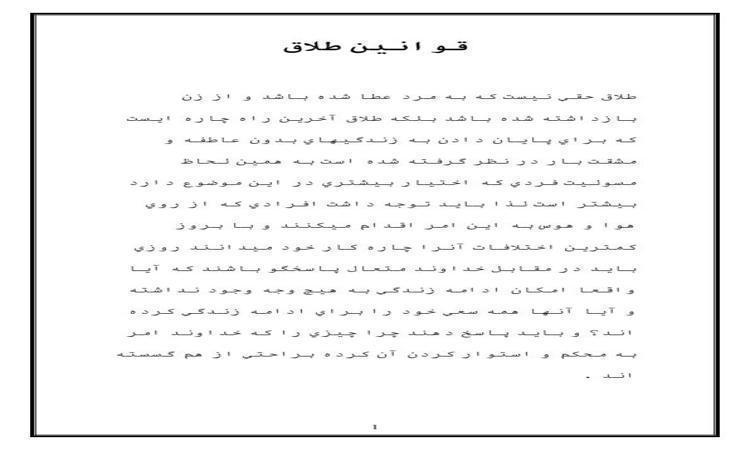 قوانين طلاق
طلاق حقي نيست که به مرد عطا شده باشد و از زن
بازداشته شده باشد بلکه طلاق آخرين راه چاره ايست
که براي پايان دادن به زندگيهاي بدون عاطفه و
مشقت بار در نظر گرفته شده است به همين لحاظ
مسوليت فردي که اختيار بيشتري در اين موضوع دارد
بيشتر است لذا بايد توجه داشت افرادي که از روي
هوا و هوس به اين امر اقدام ميکنند و با بروز
کمترين اختلافات آنرا چاره کار خود ميدانند روزي
بايد در مقابل خداوند متعال پاسخگو باشند که آيا
واقعا امکان ادامه زندگي به هيچ وجه وجود نداشته
و آيا آنها همه سعي خود را براي ادامه زندگي کرده
اند؟ و بايد پاسخ دهند چرا چيزي را که خداوند امر
به محکم و استوار کردن آن کرده براحتي از هم گسسته
اند .
1